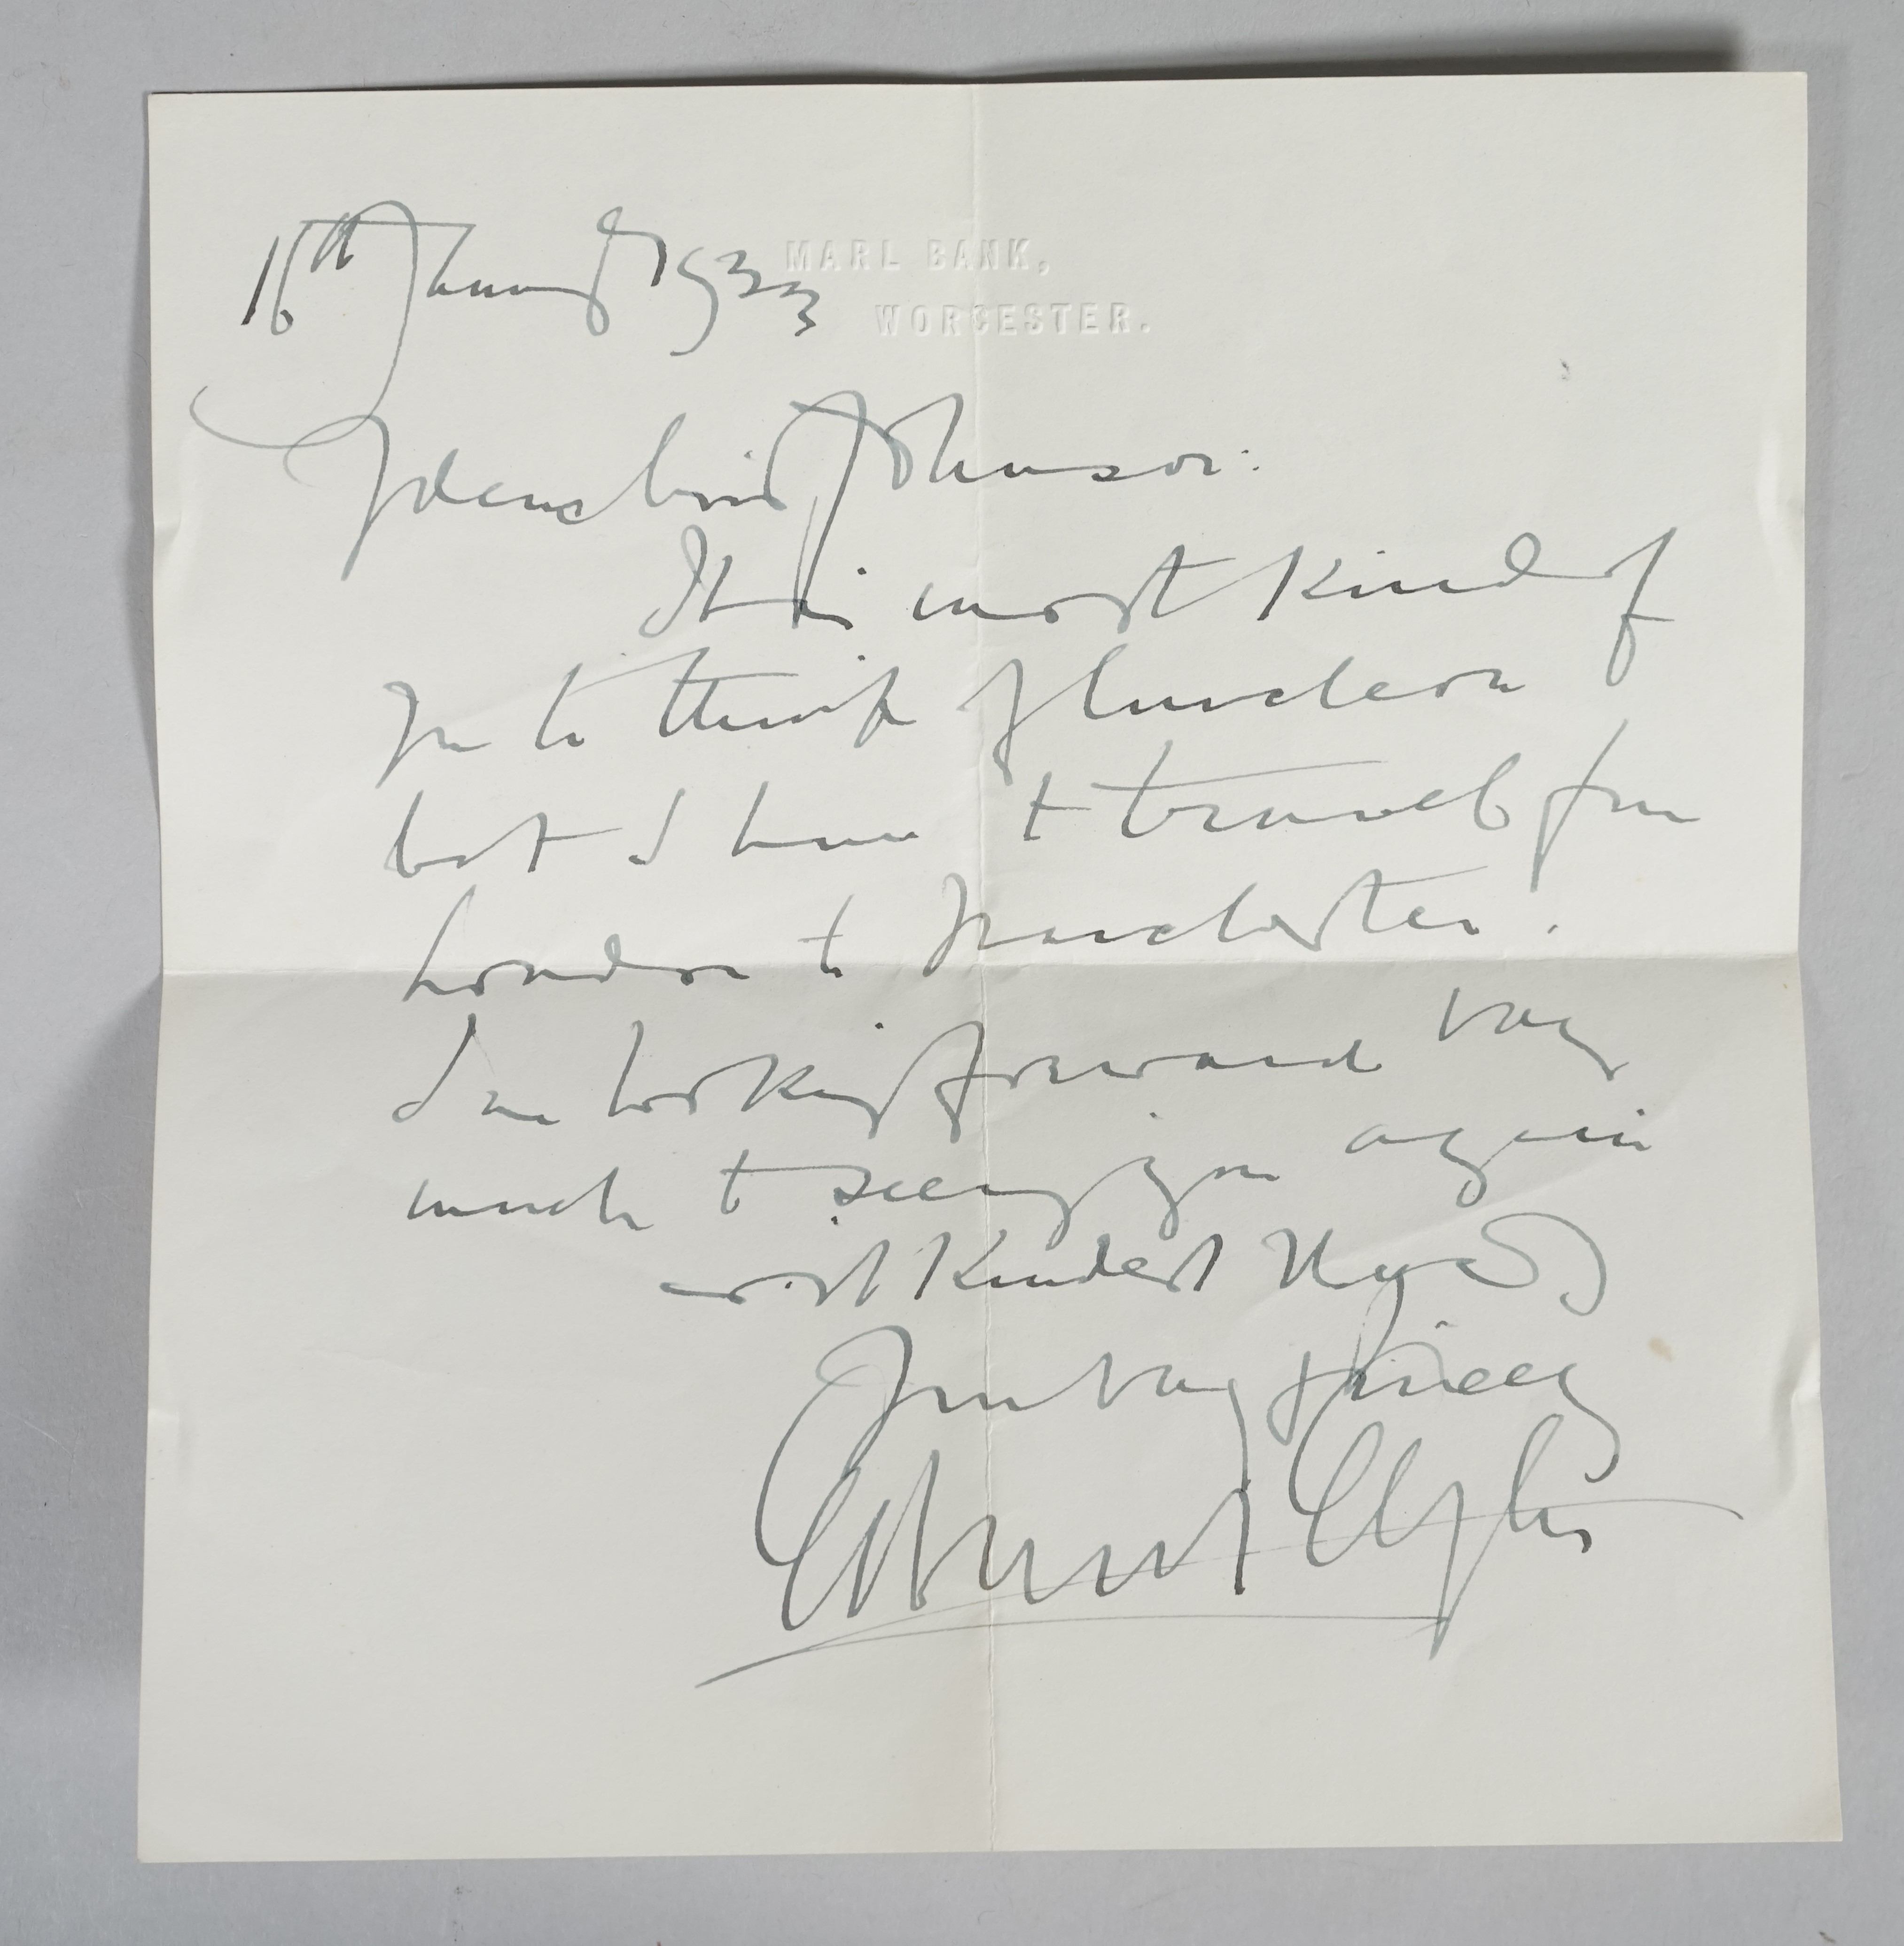 MARL BANK,
WORCESTER.
16th January 1933
My dear Miss Johnson:
It is most kind of
you to think of luncheon
but I have to travel from
London to Manchester.
I am looking forward very
much to seeing you again
with Kindest regards
Yours very sincerely
Edward Elgar